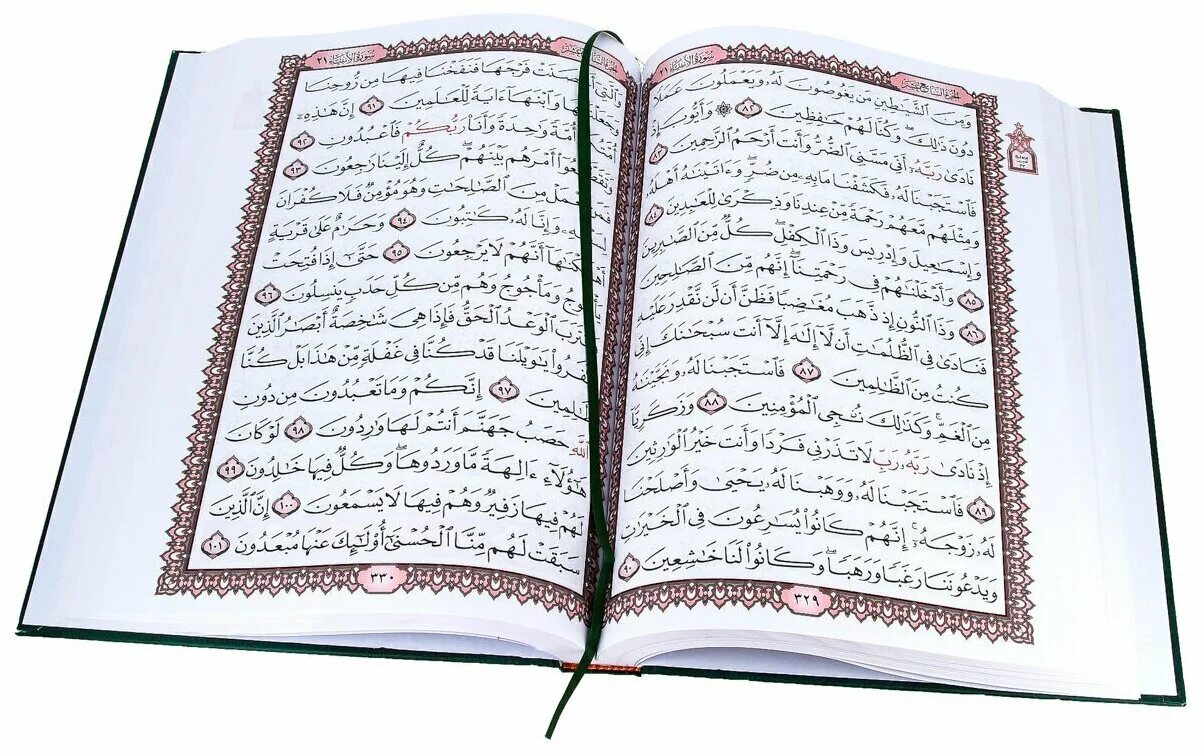 الجزء السابع عشر
سورة الأنبياء ٢١
وَمِنَ ٱلشَّيَٰطِينِ مَن يَغُوصُونَ لَهُۥ وَيَعْمَلُونَ عَمَلًا
دُونَ ذَٰلِكَۖ وَكُنَّا لَهُمْ حَٰفِظِينَ ٨٢ ۞ وَأَيُّوبَ إِذْ
نَادَىٰ رَبَّهُۥٓ أَنِّي مَسَّنِيَ ٱلضُّرُّ وَأَنتَ أَرْحَمُ ٱلرَّٰحِمِينَ ٨٣
فَٱسْتَجَبْنَا لَهُۥ فَكَشَفْنَا مَا بِهِۦ مِن ضُرٍّۖ وَءَاتَيْنَٰهُ أَهْلَهُۥ
وَمِثْلَهُم مَّعَهُمْ رَحْمَةً مِّنْ عِندِنَا وَذِكْرَىٰ لِلْعَٰبِدِينَ ٨٤
وَإِسْمَٰعِيلَ وَإِدْرِيسَ وَذَا ٱلْكِفْلِۖ كُلٌّ مِّنَ ٱلصَّٰبِرِينَ
٨٥ وَأَدْخَلْنَٰهُمْ فِي رَحْمَتِنَآۖ إِنَّهُم مِّنَ ٱلصَّٰلِحِينَ
٨٦ وَذَا ٱلنُّونِ إِذ ذَّهَبَ مُغَٰضِبًا فَظَنَّ أَن لَّن نَّقْدِرَ عَلَيْهِ
فَنَادَىٰ فِي ٱلظُّلُمَٰتِ أَن لَّآ إِلَٰهَ إِلَّآ أَنتَ سُبْحَٰنَكَ إِنِّي
كُنتُ مِنَ ٱلظَّٰلِمِينَ ٨٧ فَٱسْتَجَبْنَا لَهُۥ وَنَجَّيْنَٰهُ
مِنَ ٱلْغَمِّۚ وَكَذَٰلِكَ نُۨجِي ٱلْمُؤْمِنِينَ ٨٨ وَزَكَرِيَّآ
إِذْ نَادَىٰ رَبَّهُۥ رَبِّ لَا تَذَرْنِي فَرْدًا وَأَنتَ خَيْرُ ٱلْوَٰرِثِينَ
٨٩ فَٱسْتَجَبْنَا لَهُۥ وَوَهَبْنَا لَهُۥ يَحْيَىٰ وَأَصْلَحْنَا
لَهُۥ زَوْجَهُۥٓۚ إِنَّهُمْ كَانُوا۟ يُسَٰرِعُونَ فِي ٱلْخَيْرَٰتِ
وَيَدْعُونَنَا رَغَبًا وَرَهَبًاۖ وَكَانُوا۟ لَنَا خَٰشِعِينَ ٩٠
٣٢٩
الجزء السابع عشر
سورة الأنبياء ٢١
وَٱلَّتِيٓ أَحْصَنَتْ فَرْجَهَا فَنَفَخْنَا فِيهَا مِن رُّوحِنَا
وَجَعَلْنَٰهَا وَٱبْنَهَآ ءَايَةً لِّلْعَٰلَمِينَ ٩١ إِنَّ هَٰذِهِۦٓ
أُمَّتُكُمْ أُمَّةً وَٰحِدَةً وَأَنَا۠ رَبُّكُمْ فَٱعْبُدُونِ ٩٢
وَتَقَطَّعُوٓا۟ أَمْرَهُم بَيْنَهُمْۖ كُلٌّ إِلَيْنَا رَٰجِعُونَ ٩٣
فَمَن يَعْمَلْ مِنَ ٱلصَّٰلِحَٰتِ وَهُوَ مُؤْمِنٌ فَلَا كُفْرَانَ
لِسَعْيِهِۦ وَإِنَّا لَهُۥ كَٰتِبُونَ ٩٤ وَحَرَٰمٌ عَلَىٰ قَرْيَةٍ
أَهْلَكْنَٰهَآ أَنَّهُمْ لَا يَرْجِعُونَ ٩٥ حَتَّىٰٓ إِذَا فُتِحَتْ
يَأْجُوجُ وَمَأْجُوجُ وَهُم مِّن كُلِّ حَدَبٍ يَنسِلُونَ ٩٦
وَٱقْتَرَبَ ٱلْوَعْدُ ٱلْحَقُّ فَإِذَا هِيَ شَٰخِصَةٌ أَبْصَٰرُ ٱلَّذِينَ
كَفَرُوا۟ يَٰوَيْلَنَا قَدْ كُنَّا فِي غَفْلَةٍ مِّنْ هَٰذَا بَلْ كُنَّا
ظَٰلِمِينَ ٩٧ إِنَّكُمْ وَمَا تَعْبُدُونَ مِن دُونِ
ٱللَّهِ حَصَبُ جَهَنَّمَ أَنتُمْ لَهَا وَٰرِدُونَ ٩٨ لَوْ كَانَ
هَٰٓؤُلَآءِ ءَالِهَةً مَّا وَرَدُوهَاۖ وَكُلٌّ فِيهَا خَٰلِدُونَ ٩٩
لَهُمْ فِيهَا زَفِيرٌ وَهُمْ فِيهَا لَا يَسْمَعُونَ ١٠٠ إِنَّ ٱلَّذِينَ
سَبَقَتْ لَهُم مِّنَّا ٱلْحُسْنَىٰٓ أُو۟لَٰٓئِكَ عَنْهَا مُبْعَدُونَ ١٠١
٣٣٠